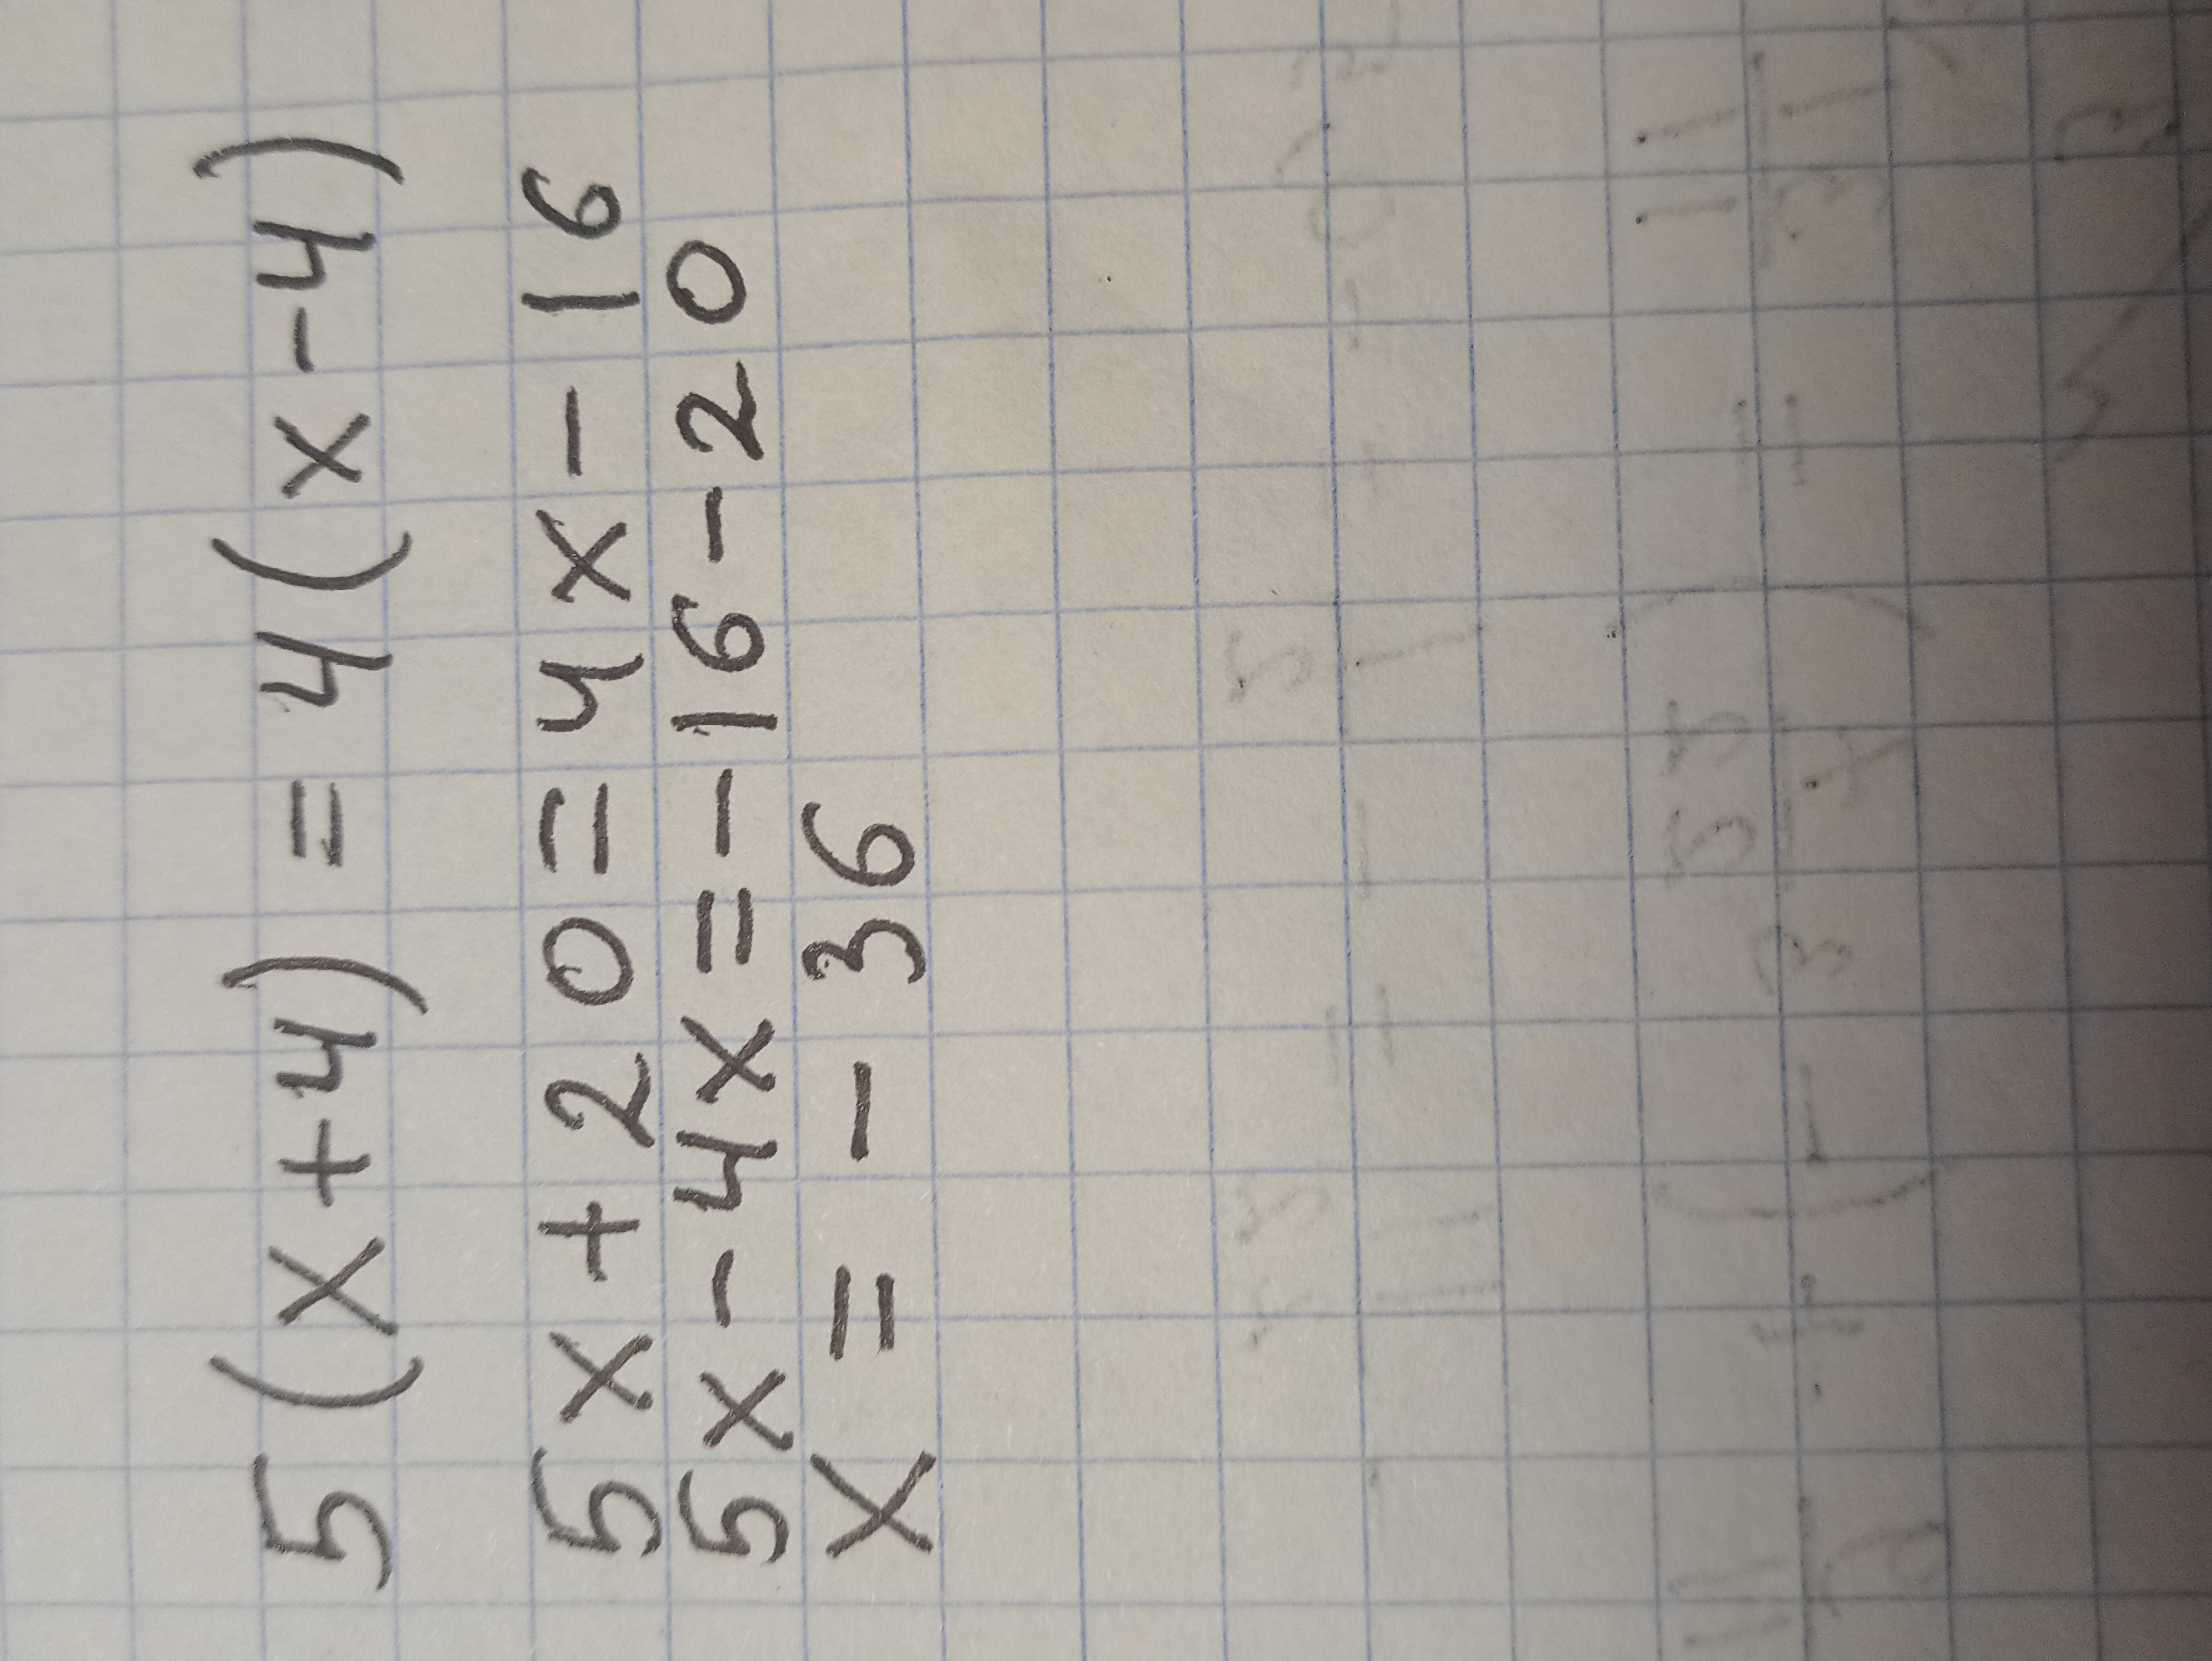 5(x+4) = 4(x-4)
5x+20=4x-16
5x-4x=-16-20
x=-36